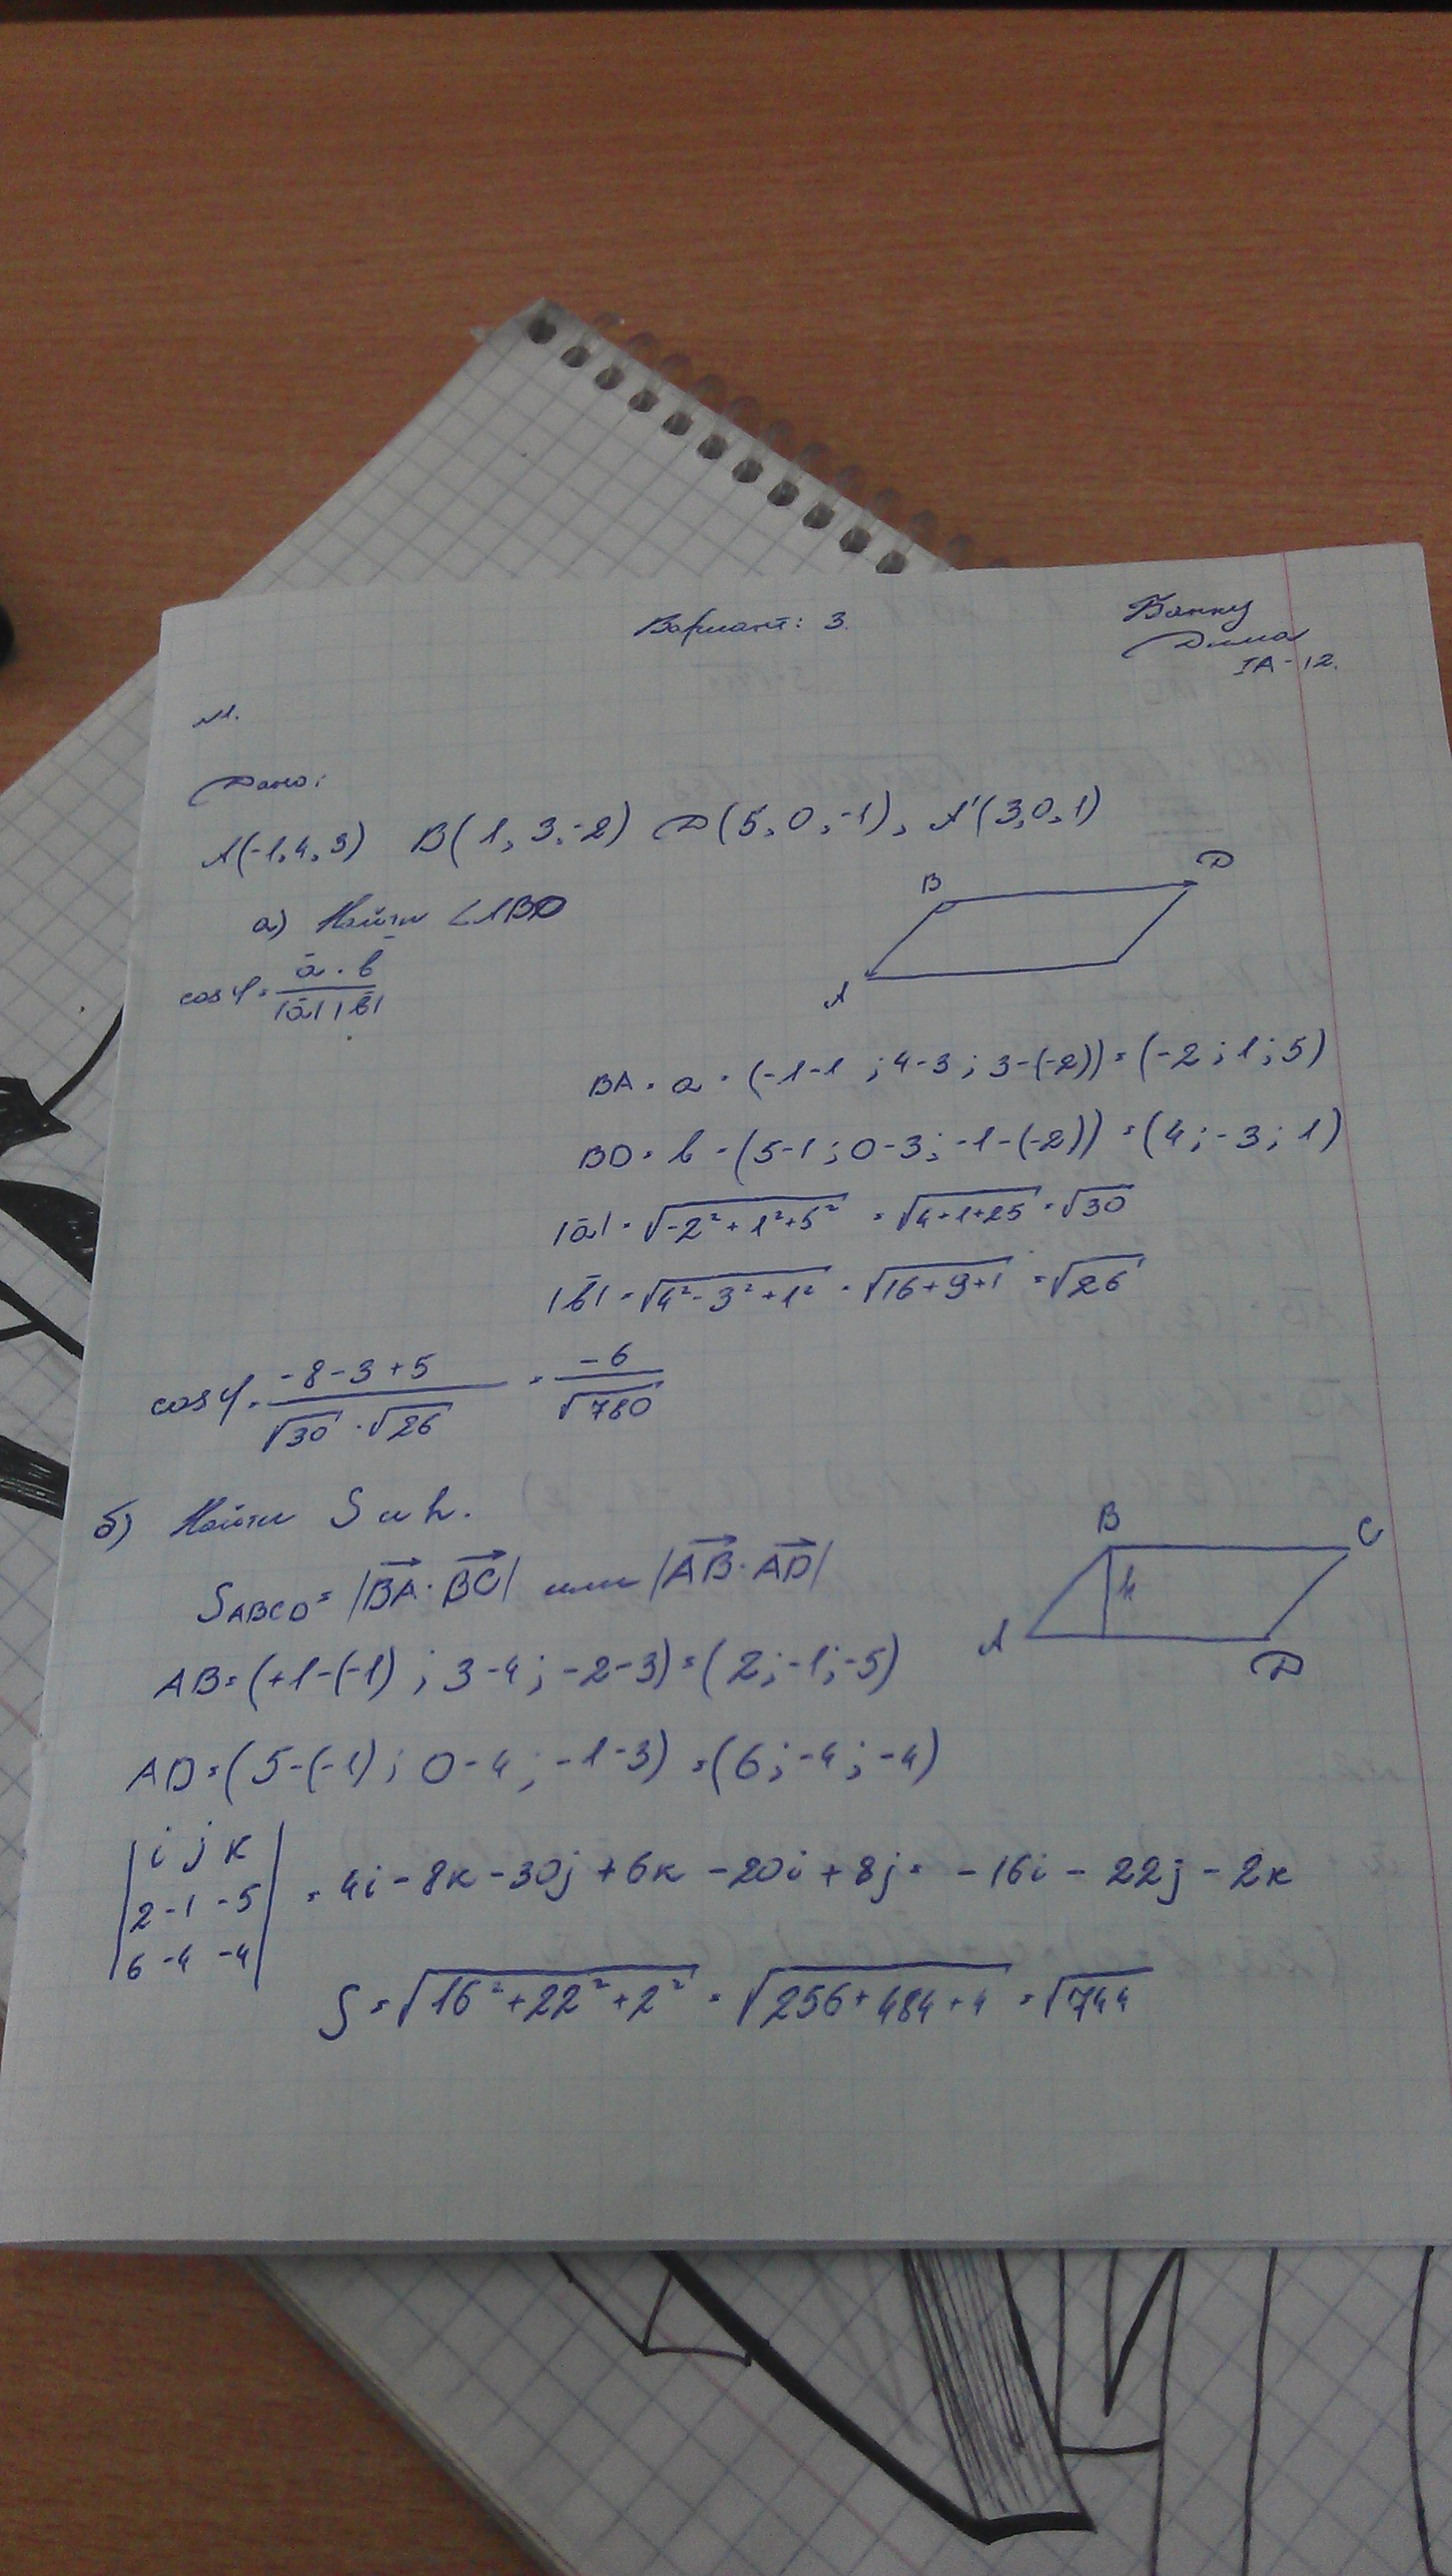 Вариант: 3.
Дима
IA-12.
№1.
Дано:
A(-1,4,3) B(1,3,-2) D(5,0,-1), A'(3,0,1)
а) Найти ∠ABD
B D
A
cosφ = ā·b̄ / |ā| |b̄|
BA = a = (-1-1 ; 4-3 ; 3-(-2)) = (-2 ; 1 ; 5)
BD = b = (5-1 ; 0-3 ; -1-(-2)) = (4 ; -3 ; 1)
|ā| = √(-2²+1²+5²) = √(4+1+25) = √30
|b̄| = √(4²-3²+1²) = √(16+9+1) = √26
cosφ = (-8-3+5) / (√30 · √26) = -6 / √780
б) Найти S и h.
B C
h
A D
S ABCD = |BA · BC| или |AB · AD|
AB = (+1-(-1) ; 3-4 ; -2-3) = (2 ; -1 ; -5)
AD = (5-(-1) ; 0-4 ; -1-3) = (6 ; -4 ; -4)
|i j k|
|2 -1 -5| = 4i - 8k - 30j + 6k - 20i + 8j = -16i - 22j - 2k
|6 -4 -4|
S = √(16²+22²+2²) = √(256+484+4) = √744